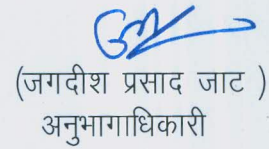 (जगदीश प्रसाद जाट )
अनुभागाधिकारी